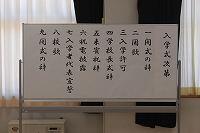 入学式次第
一開式の辞
二国歌
三入学許可
四学校長式辞
五来賓祝辞
六祝電披露
七入学者代表宣誓
八校歌
九閉式の辞